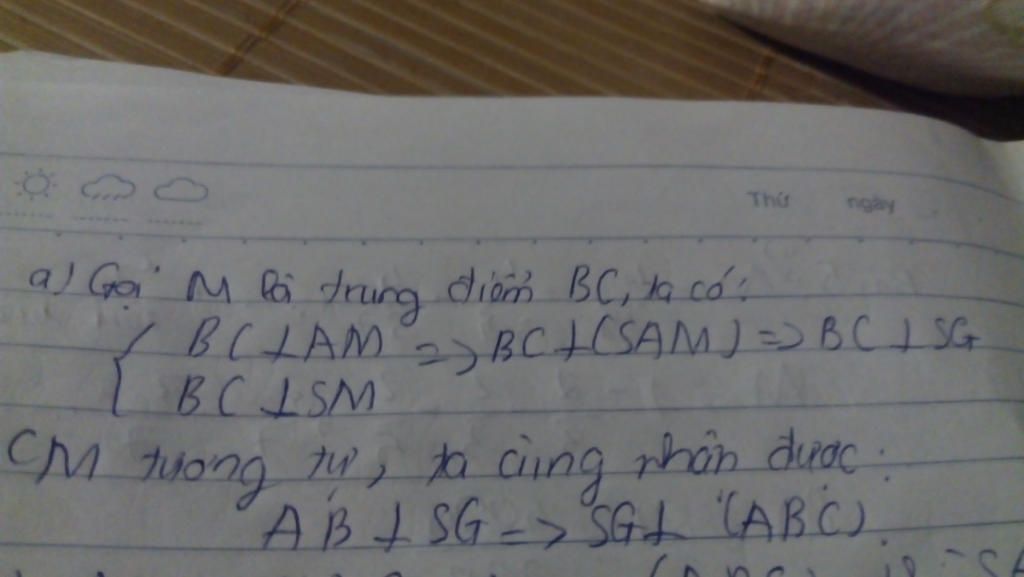 Thứ ngày
a) Gọi M là trung điểm BC, ta có:
{ BC ⊥ AM => BC ⊥ (SAM) => BC ⊥ SG
BC ⊥ SM
CM tương tự, ta cũng nhận được:
AB ⊥ SG => SG ⊥ (ABC).